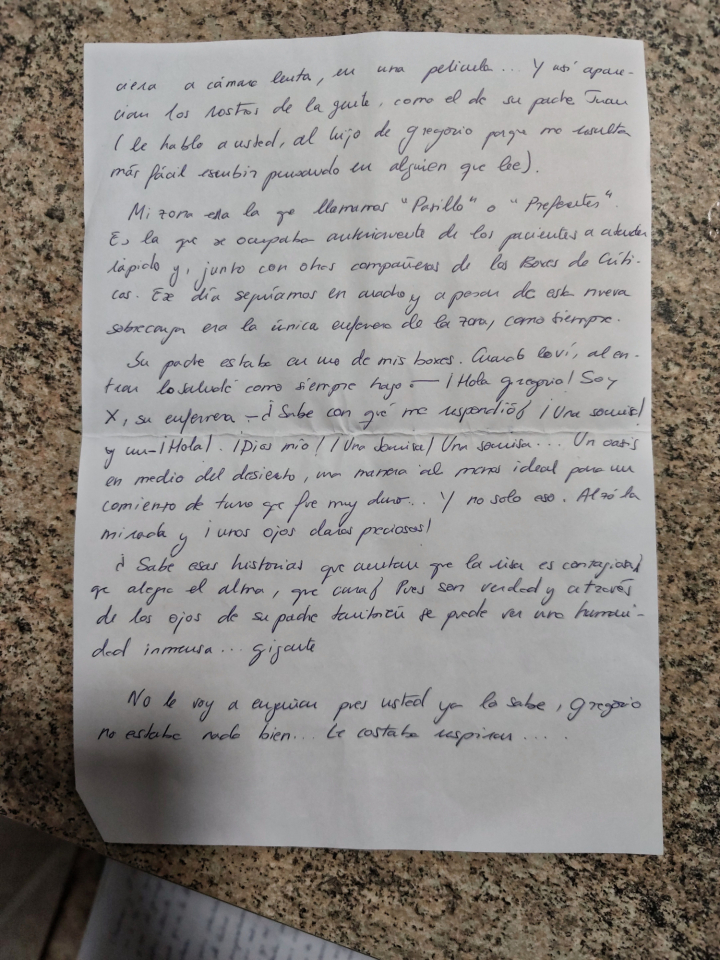 viera a cámara lenta, en una película... Y así apare-
cían los rostros de la gente, como el de su padre Juan
(le hablo a usted, al hijo de Gregorio porque me resulta
más fácil escribir pensando en alguien que lee).
Mi zona era la que llamamos "Pasillo" o "Preferentes".
Es la que se ocupaba anteriormente de los pacientes a atender
rápido y, junto con otros compañeros de los Boxes de Críti-
cos. Ese día seguíamos en          y a pesar de esta nueva
sobrecarga era la única enfermera de la zona, como siempre.
Su padre estaba en uno de mis boxes. Cuando lo vi, al en-
trar lo saludé como siempre hago. — ¡Hola Gregorio! Soy
X, su enfermera — ¿Sabe con qué me respondió? ¡Una sonrisa!
y un —¡Hola!. ¡Dios mío! ¡Una sonrisa! Una sonrisa... Un oasis
en medio del desierto, una manera al menos ideal para un
comienzo de turno que fue muy duro... Y no solo eso. Alzó la
mirada y ¡unos ojos claros preciosos!
¿Sabe esas historias que cuentan que la risa es contagiosa,
que alegra el alma, que cura? Pues son verdad y a través
de los ojos de su padre también se puede ver una humani-
dad inmensa... gigante
No le voy a engañar pues usted ya lo sabe, Gregorio
no estaba nada bien... Le costaba respirar....